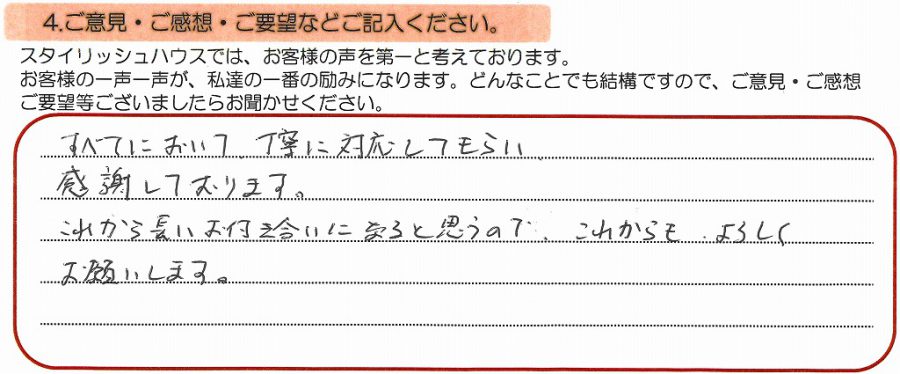 4.ご意見・ご感想・ご要望などご記入ください。
スタイリッシュハウスでは、お客様の声を第一と考えております。
お客様の一声一声が、私達の一番の励みになります。どんなことでも結構ですので、ご意見・ご感想
ご要望等ございましたらお聞かせください。
すべてにおいて、丁寧に対応してもらい、
感謝しております。
これから長いお付き合いになると思うので、これからも、よろしく
お願いします。